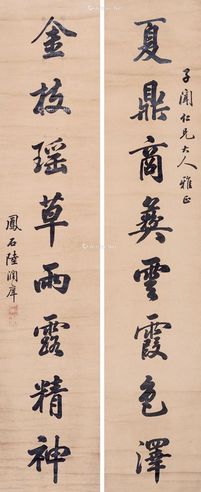 子闓仁兄大人雅正
夏鼎商彝雲霞色澤
金枝瑶草雨露精神
鳳石陸潤庠